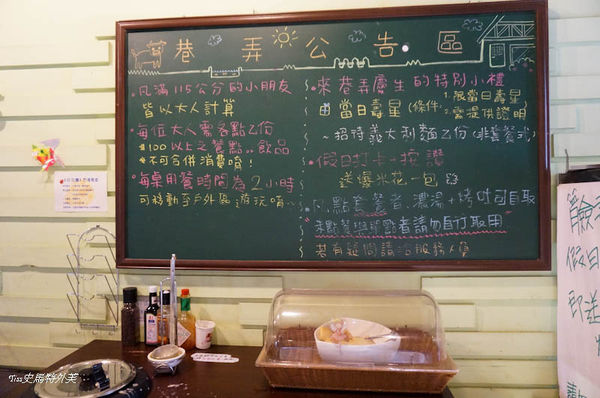 巷弄公告區
·凡滿115公分的小朋友
皆以大人計算
·每位大人需各點乙份
$100以上之餐點..飲品
*不可合併消費唷!
·每桌用餐時間為2小時
可移動至戶外區游玩唷~
·來巷弄慶生的特別小禮
由當日壽星(條件:1.限當日壽星
2.需提供證明)
~招待義大利麵乙份(非套餐式)
·假日打卡·按讚
送爆米花一包
·凡.點套餐者.濃湯+烤吐司自取
未點餐與單點者請勿自行取用
若有疑問請洽服務人員
假日
即送
Tiss史馬特外芙